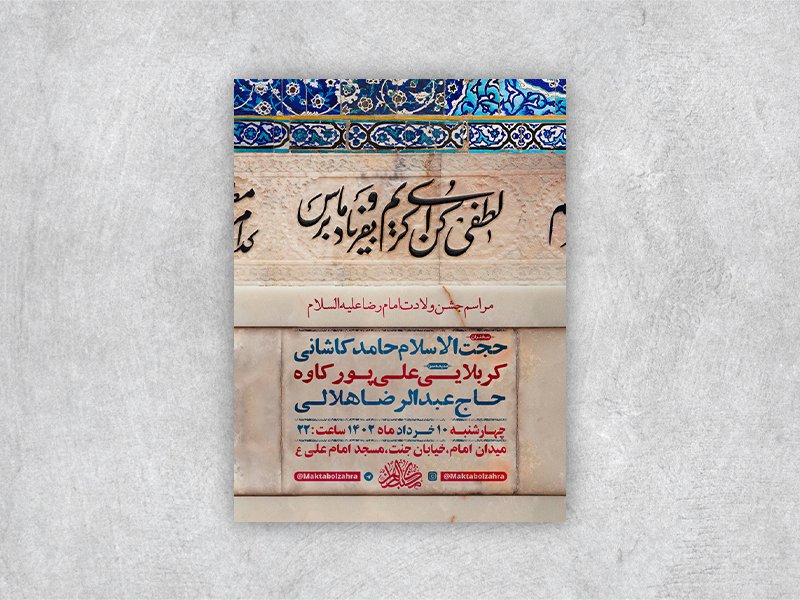 لطفی کن ای کریم و بفریاد ما برس
مراسم جشن ولادت امام رضا علیه السلام
سخنران
حجت الاسلام حامد کاشانی
کربلایی علی پور کاوه
حاج عبدالرضا هلالی
چهارشنبه ۱۰ خرداد ماه ۱۴۰۲ ساعت: ۲۲
میدان امام، خیابان جنت، مسجد امام علی ع
@Maktabolzahra @Maktabolzahra